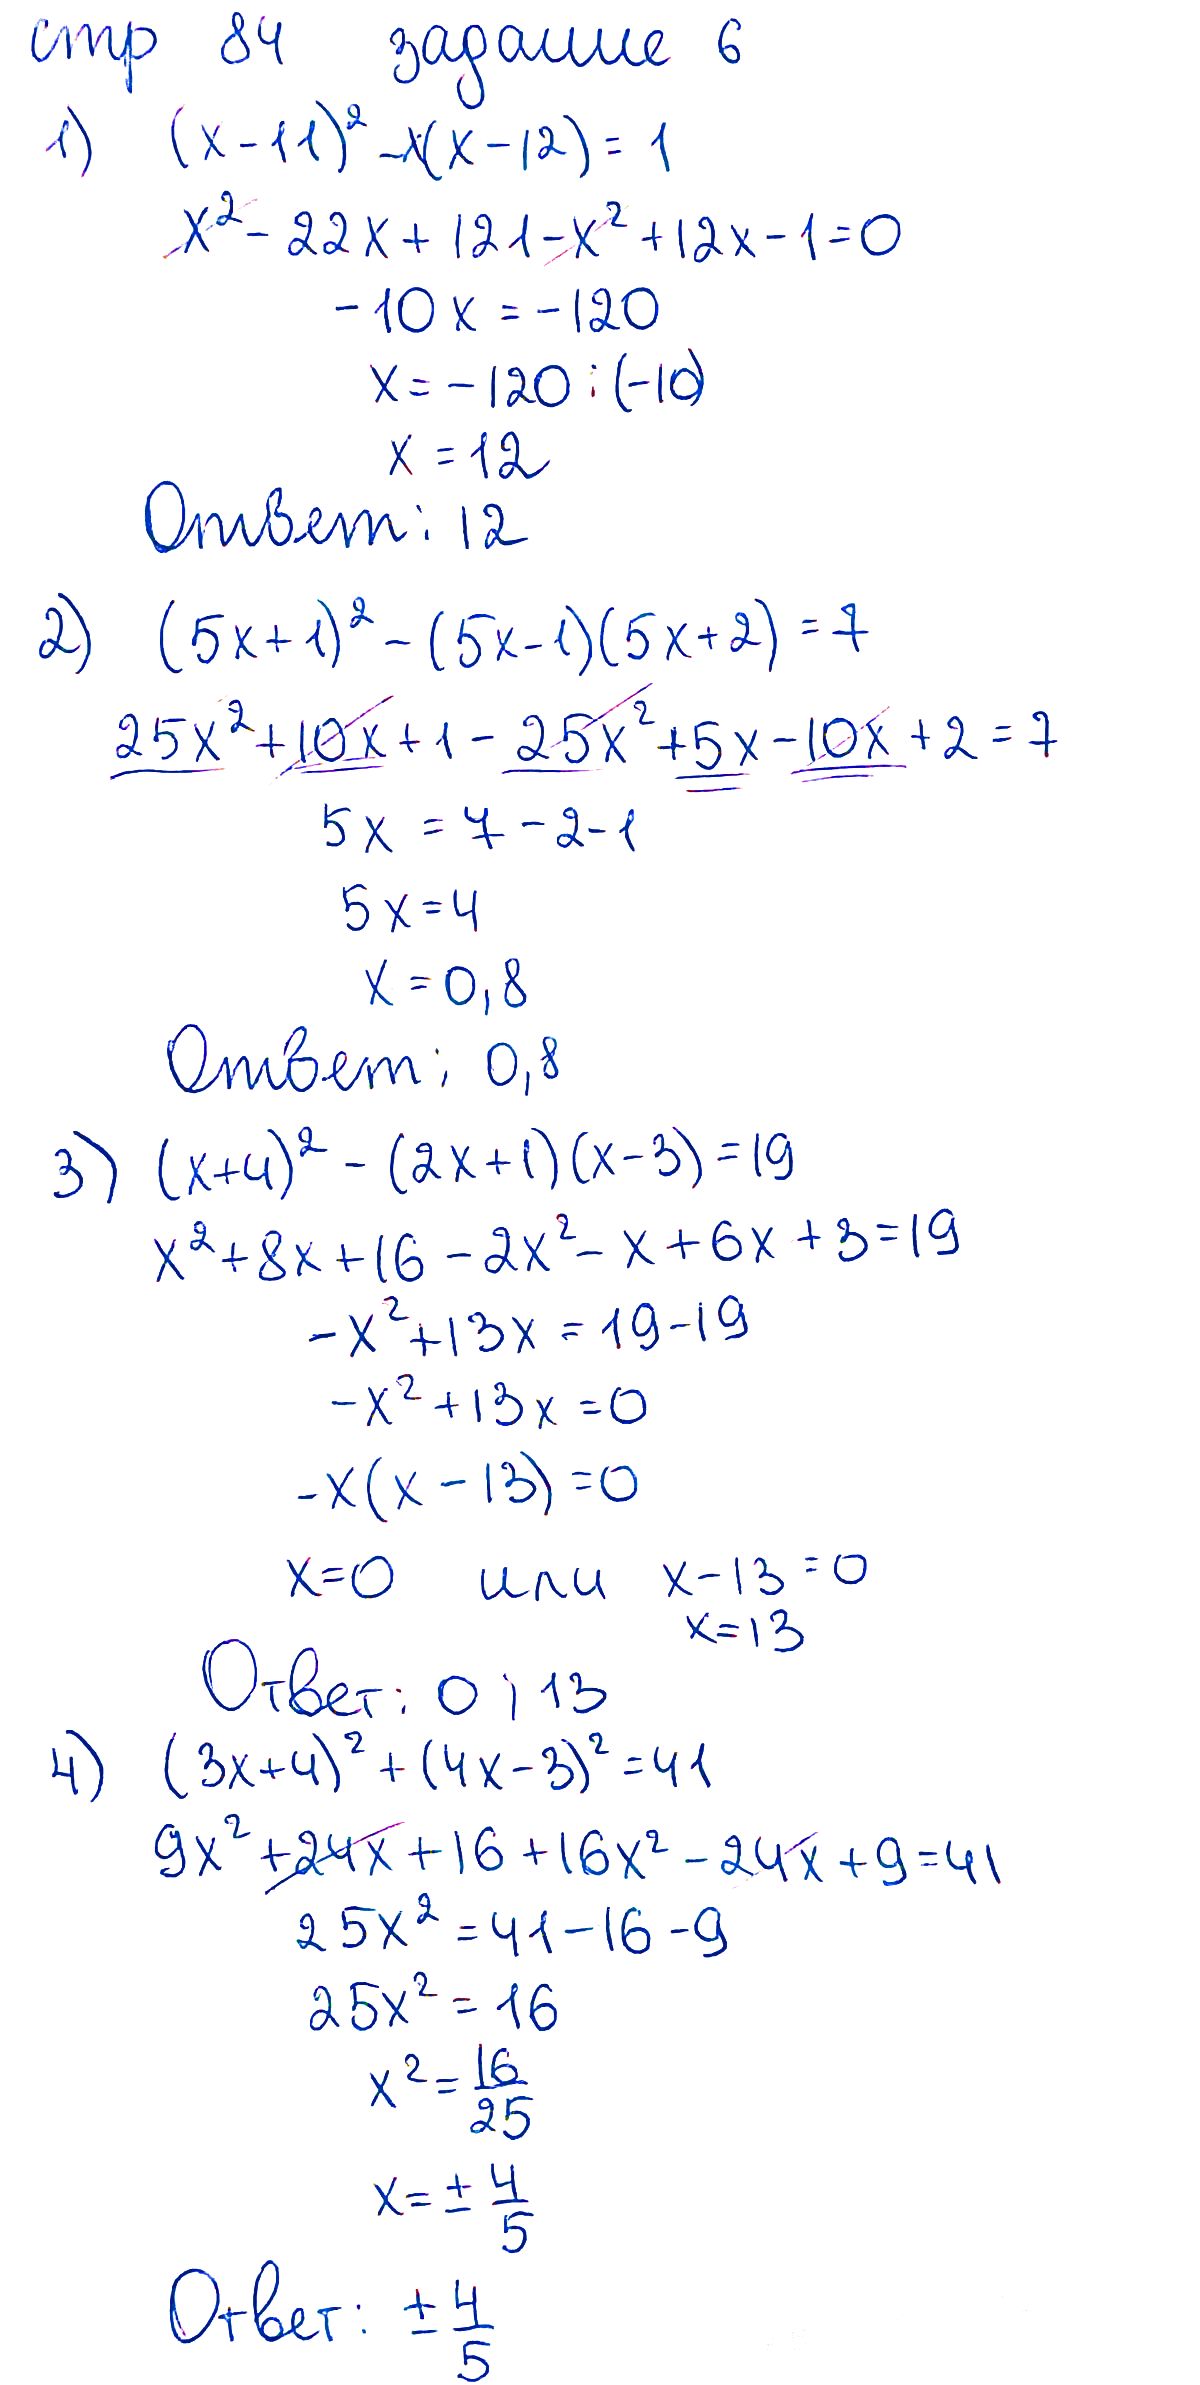 стр 84 задание 6
1) (x-11)² -x(x-12)=1
x²-22x+121-x²+12x-1=0
-10x=-120
x=-120:(-10)
x=12
Ответ: 12
2) (5x+1)²-(5x-1)(5x+2)=7
25x²+10x+1-25x²+5x-10x+2=7
5x=7-2-1
5x=4
x=0,8
Ответ: 0,8
3) (x+4)²-(2x+1)(x-3)=19
x²+8x+16-2x²-x+6x+3=19
-x²+13x=19-19
-x²+13x=0
-x(x-13)=0
x=0 или x-13=0
x=13
Ответ: 0; 13
4) (3x+4)²+(4x-3)²=41
9x²+24x+16+16x²-24x+9=41
25x²=41-16-9
25x²=16
x²=16/25
x=±4/5
Ответ: ±4/5